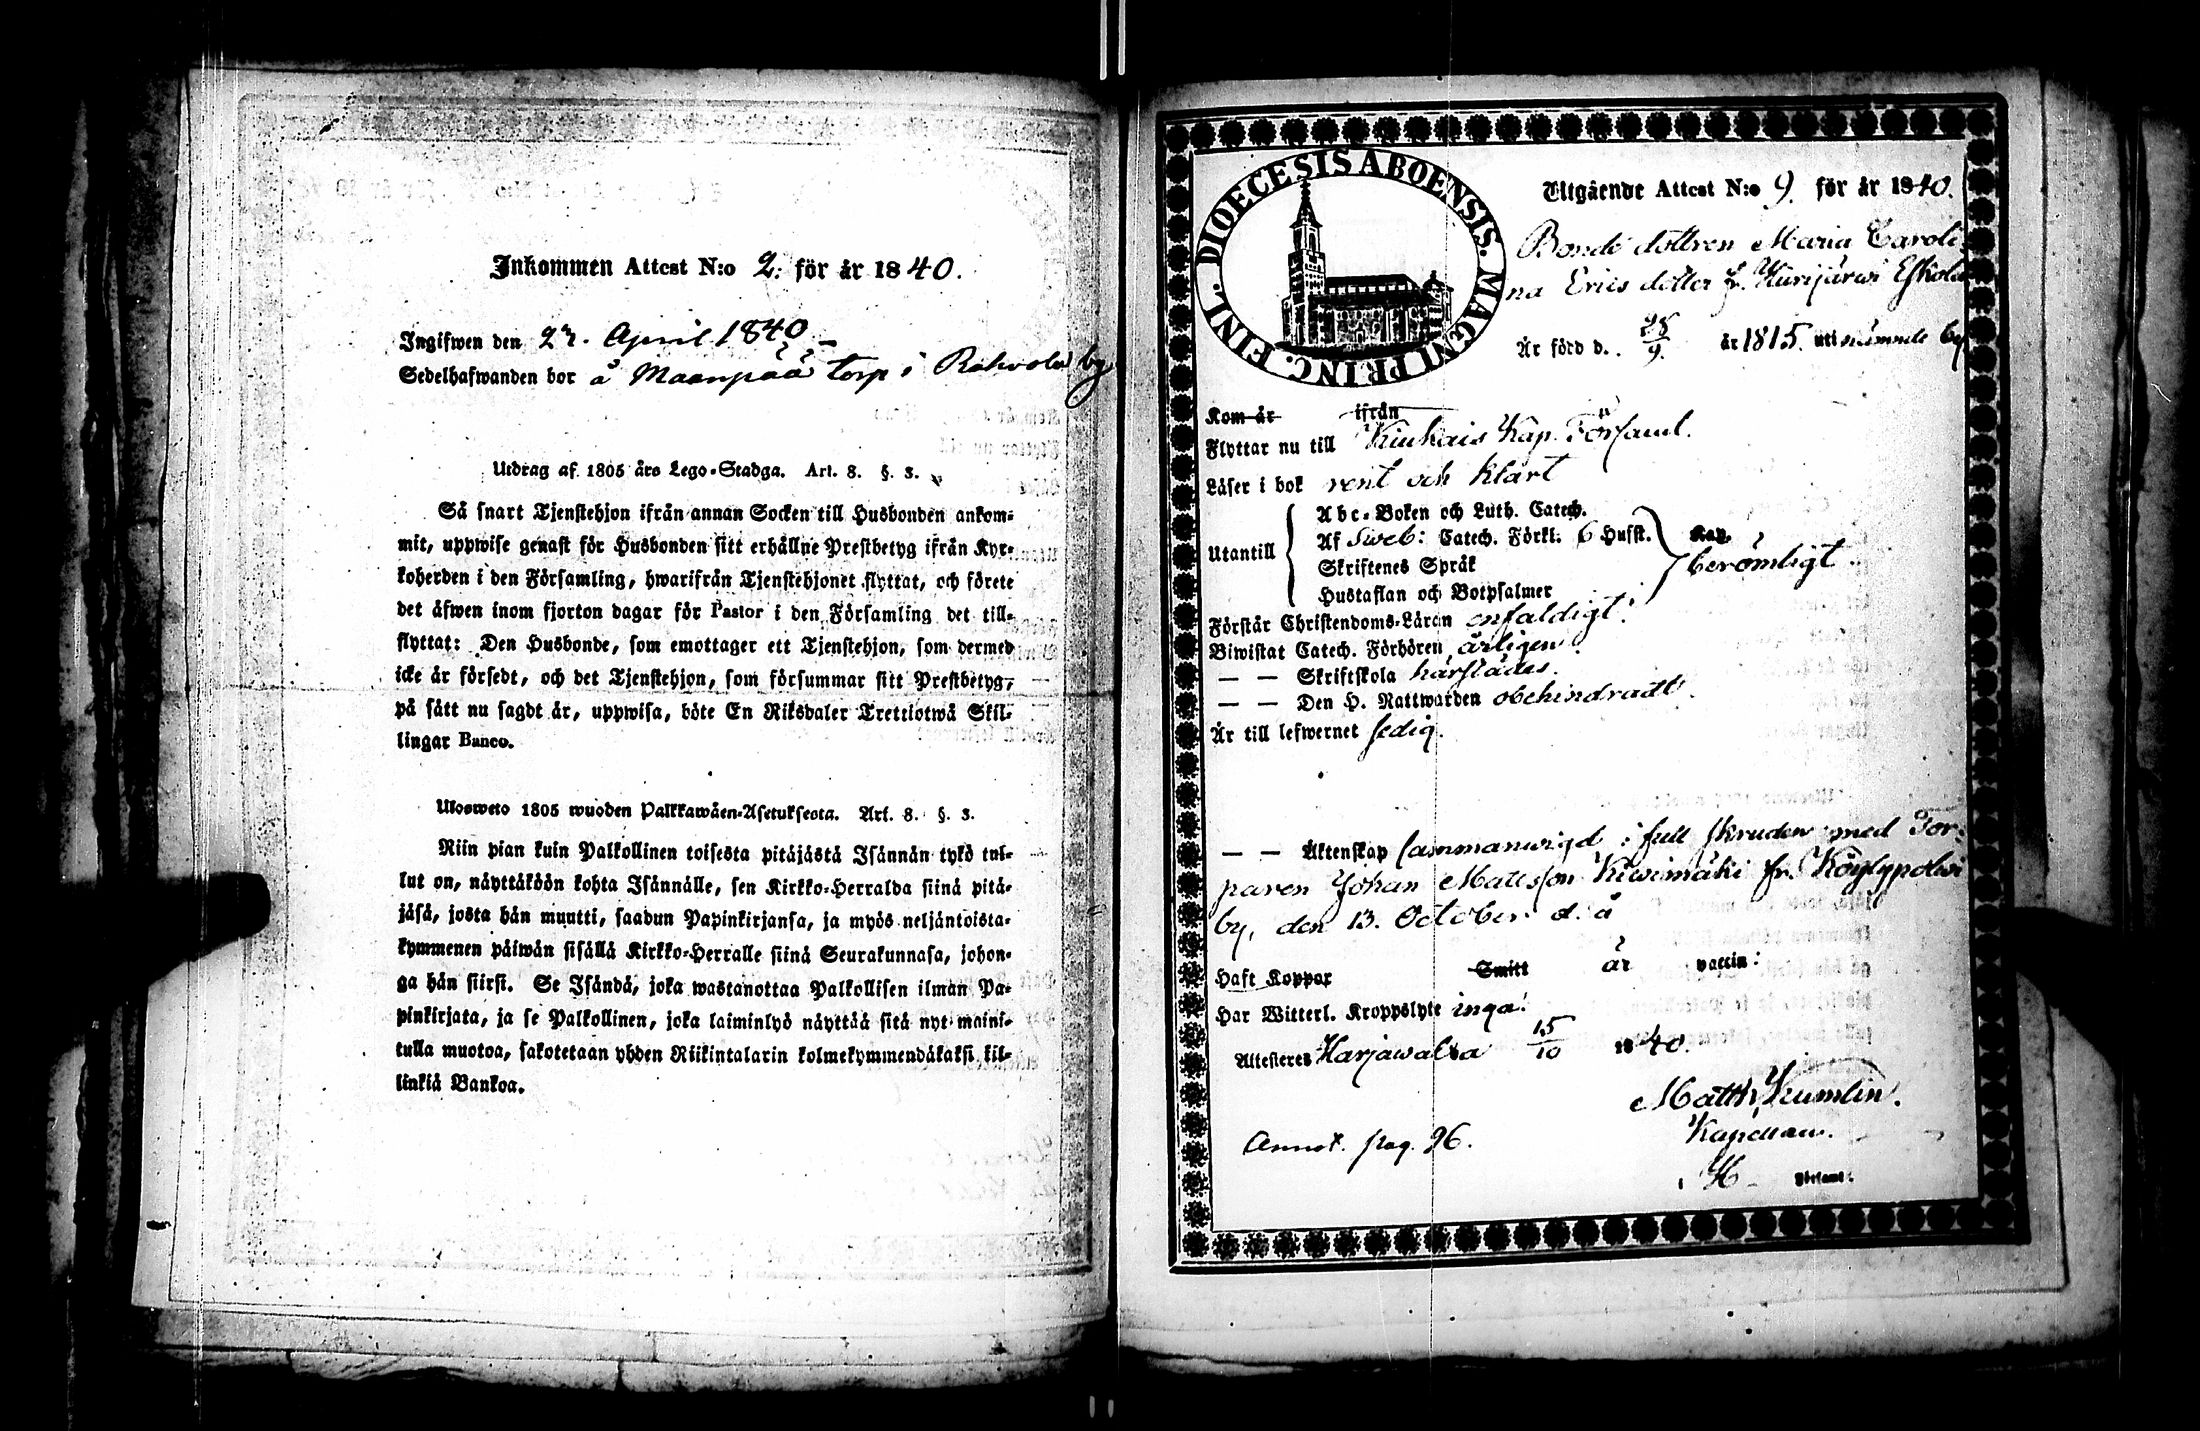 Inkommen Attest N:o 2. för år 1840.
Ingifwen den 27. April 1840
Sedelhafwanden bor å Maanpää torp i Rahvola by
Utdrag af 1805 års Lego-Stadga. Art. 8. §. 3.
Så snart Tjenstehjon ifrån annan Socken till Husbonden ankom-
mit, uppwise genast för Husbonden sitt erhållne Prestbetyg ifrån Kyr-
koherden i den Församling, hwarifrån Tjenstehjonet flyttat, och förete
det äfwen inom fjorton dagar för Pastor i den Församling det till-
flyttat: Den Husbonde, som emottager ett Tjenstehjon, som dermed
icke är försedt, och det Tjenstehjon, som försummar sitt Prestbetyg,
på sätt nu sagdt är, uppwisa, böte En Riksdaler Trettiotwå Skil-
lingar Banco.
Ulosweto 1805 wuoden Palkkawäen-Asetuksesta. Art. 8. §. 3.
Niin pian kuin Palkollinen toisesta pitäjästä Isännän tykö tul-
lut on, näyttäköön kohta Isännälle, sen Kirkko-Herralda siinä pitä-
jäsä, josta hän muutti, saadun Papinkirjansa, ja myös neljäntoista-
kymmenen päiwän sisällä Kirkko-Herralle siinä Seurakunnasa, johon-
ga hän siirsi. Se Isändä, joka wastanottaa Palkollisen ilman Pa-
pinkirjata, ja se Palkollinen, joka laiminlyö näyttää sitä nyt maini-
tulla muotoa, sakotetaan yhden Riikintalarin kolmekymmendäkaksi kil-
linkiä Bankoa.
DIOECESIS ABOENSIS. MAGNI PRINC. FINL.
Utgående Attest N:o 9. för år 1840.
Bonde dottren Maria Caroli-
na Erics dotter fr. Hiirijärwi Eskola
Är född d. 28/9. år 1815. uti nämnde by
Kom år ifrån
Flyttar nu till Kiukais Kap. Församl.
Läser i bok rent och klart
Utantill
Abc-Boken och Luth. Catech.
Af Sweb: Catech. Förkl. 6 Hufst. Kap.
Skriftenes Språk
Hustaflan och Botpsalmer
berömligt
Förstår Christendoms-Läran enfaldigt.
Biwistat Catech. Förhören årligen.
— — Skriftskola härstädes.
— — Den H. Nattwarden obehindradt.
Är till lefwernet sedig.
— — Äktenskap sammanwigd i full skruden med Tor-
paren Johan Mattsson Kiwimäki fr. Köylypolwi
by, den 13. October d. å
Haft Koppor Smitt är vaccin:
Har Witterl. Kroppslyte inga.
Attesteres Harjawalta 15/10 1840.
Matth. Kumlin.
Kapellan.
i H Församl:
Annot. pag. 96.